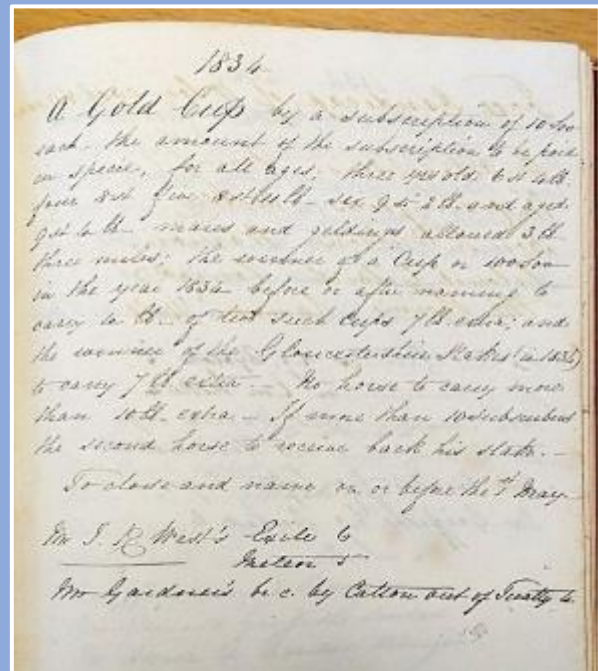 1834
A Gold Cup by a subscription of 10 Sov
each, the amount of the subscription to be paid
in specie, for all ages, three yrs old 6 st 4 lb
four 8 st five 8 st 10 lb six 9 st 2 lb and aged
9 st 4 lb mares and geldings allowed 3 lb
three miles; the winner of a Cup or 100 Sov
in the year 1834 before or after naming to
carry lb of two such Cups 7 lb extra; and
the winner of the Gloucestershire Stakes in 1834
to carry 7 lb extra No horse to carry more
than 10 lb extra If more than 10 subscribers
the second horse to receive back his stake.
To close and name on or before the 1st May
Mr J. R West's Exile 6
Meteor 5
Mr Gardner's br. c. by Catton out of